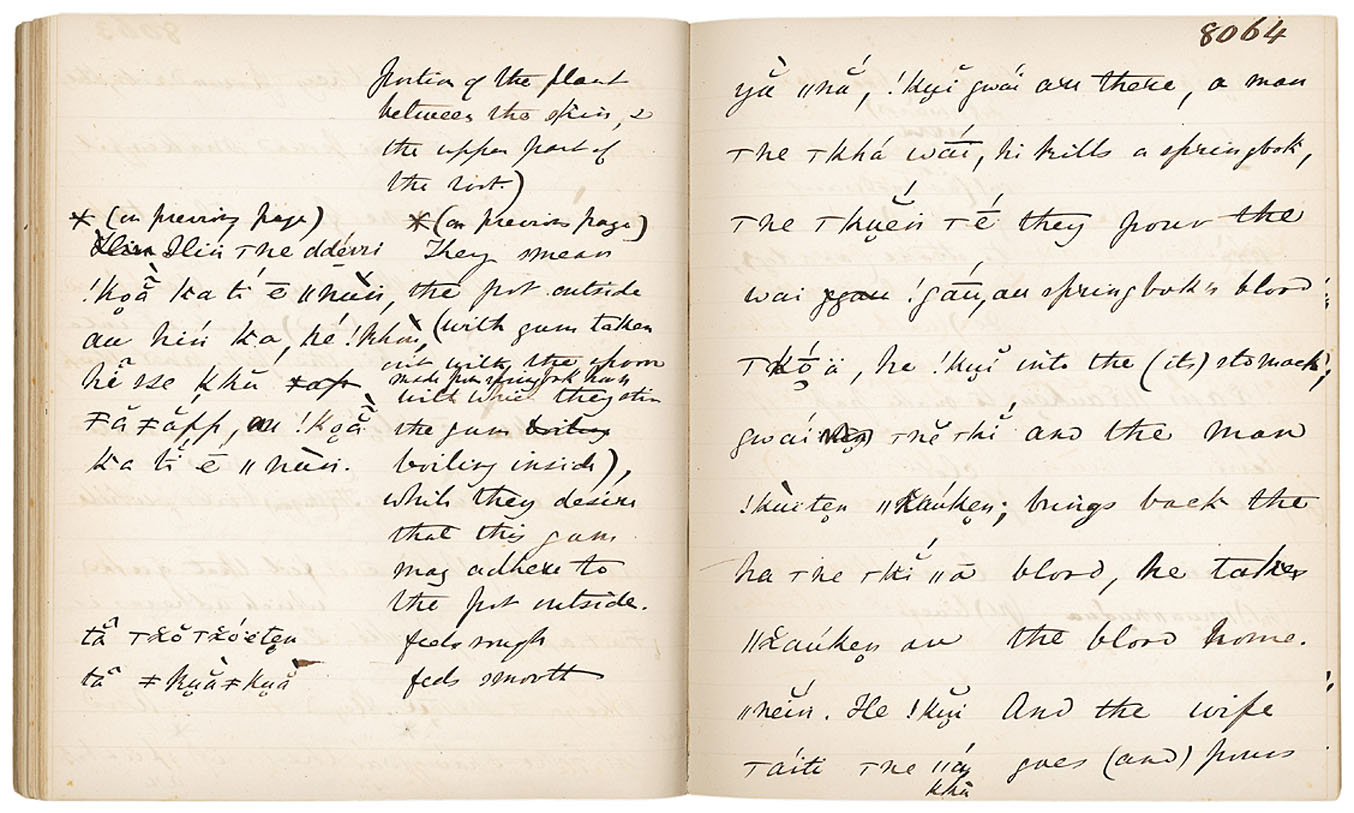 portion of the plant
between the skin, &
the upper part of
the root.)
* (on previous page)
Ilin Ilin ꞇne ddérri
!ko̥ȁ ka ti ē ǁnȁṵ,
au hiń ka, hé !khou,
hȇ sse k̥hū
ꞇ̵ă ꞇ̵ăpp, au !ko̥ȁ
ka tĭ ē ǁnȁṵ.
tȃ
tȃ
* (on previous page)
They smear
the pot outside
(with gum taken
out with the spoon
made from springbok horn
with which they stir
the gum boiling
boiling inside),
while they desire
that this gum
may adhere to
the pot outside.
feels rough
feels smooth
8064
yȁ ǁnắ, !ku̥ĭ gwái are there, a man
ꞇne ꞇkhá wā́ī, hi kills a springbok,
ꞇne ꞇku̥ĕń ꞇē̆ they pour the
wai !gā́ū, au springbok's blood
ꞇkṓ̥ä, he !ku̥ĭ into the (its) stomach;
gwái ꞇnĕ ꞇkĭ́ and the man
!kùïte̥n ǁx̱aúke̥n; brings back the
ha ꞇne ꞇkĭ́ ǁā blood, he takes
ǁx̱aúke̥n au the blood home.
ǁnĕí̆ṵ. He !ku̥ĭ And the wife
ꞇáiti ꞇne ǁá̆ goes (and) pours
khū